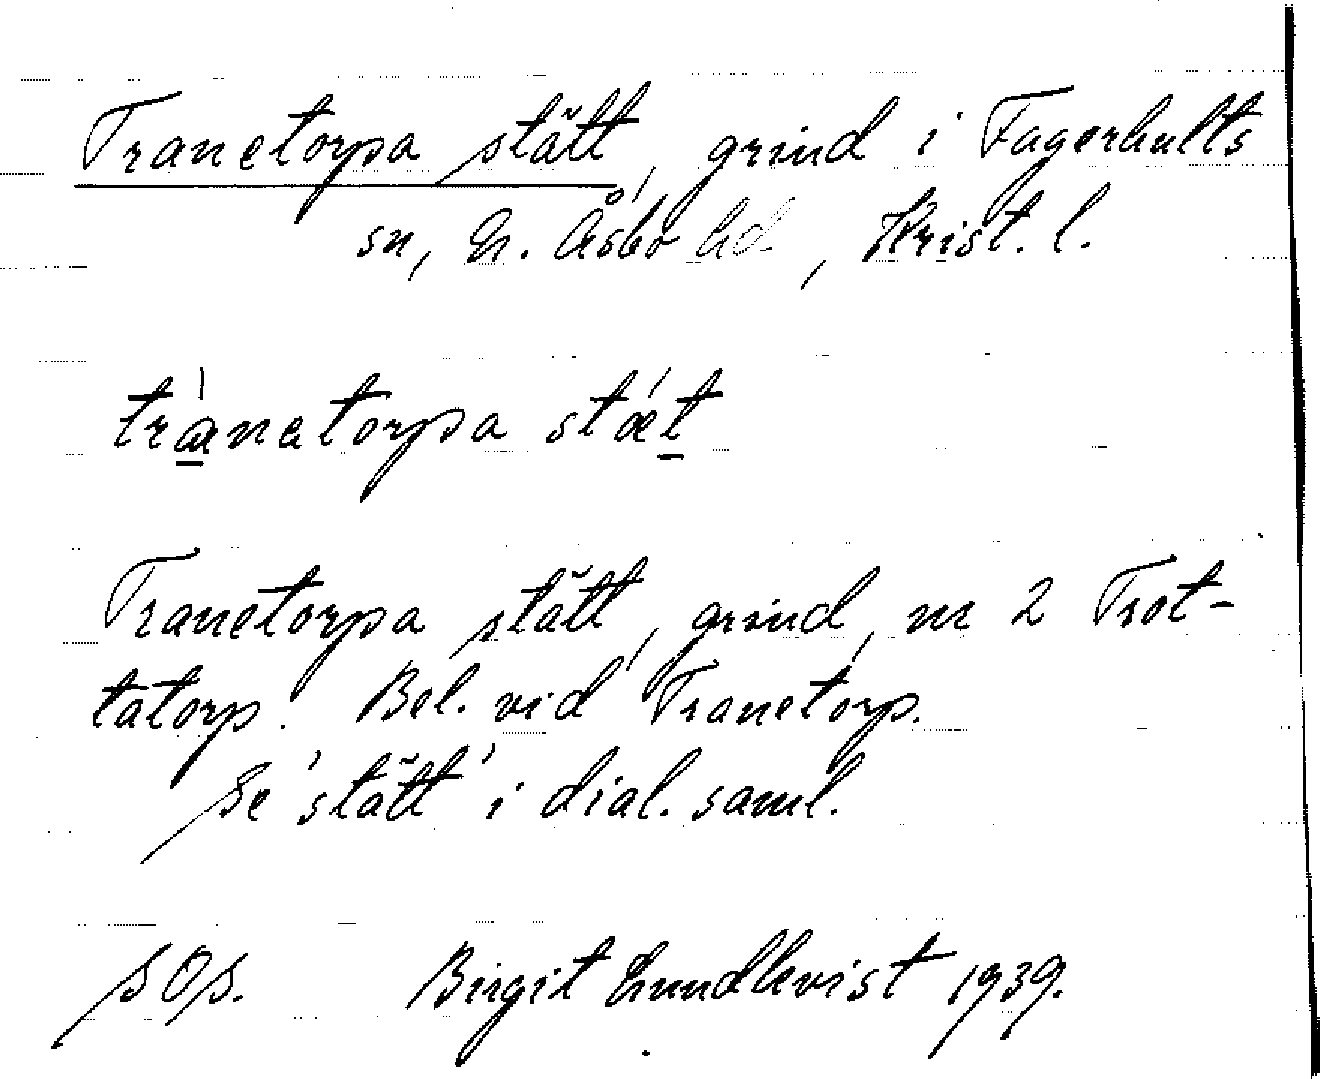 Tranetorpa stätt, grind i Fagerhults
sn, N. Åsbo hd., Krist. l.
trànatorpa stǽt
Tranetorpa stätt, grind, nr 2 Trot-
tatorp. Bel. vid Tranetorp.
Se 'stätt' i dial. saml.
SOS. Birgit Lundkvist 1939.